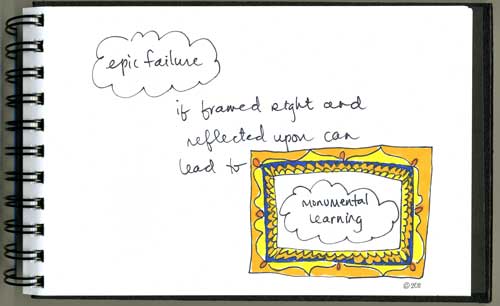 epic failure
if framed right and
reflected upon can
lead to
monumental
learning
© 2011